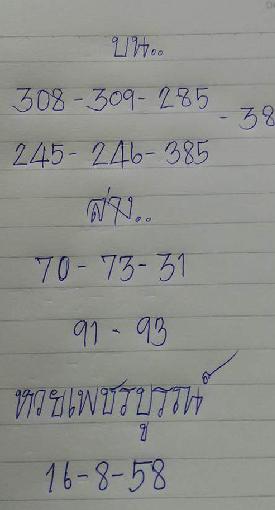 บน..
308 - 309 - 285
- 38
245 - 246 - 385
ล่าง..
70 - 73 - 31
91 - 93
หวยเพชรบูรณ์
16-8-58